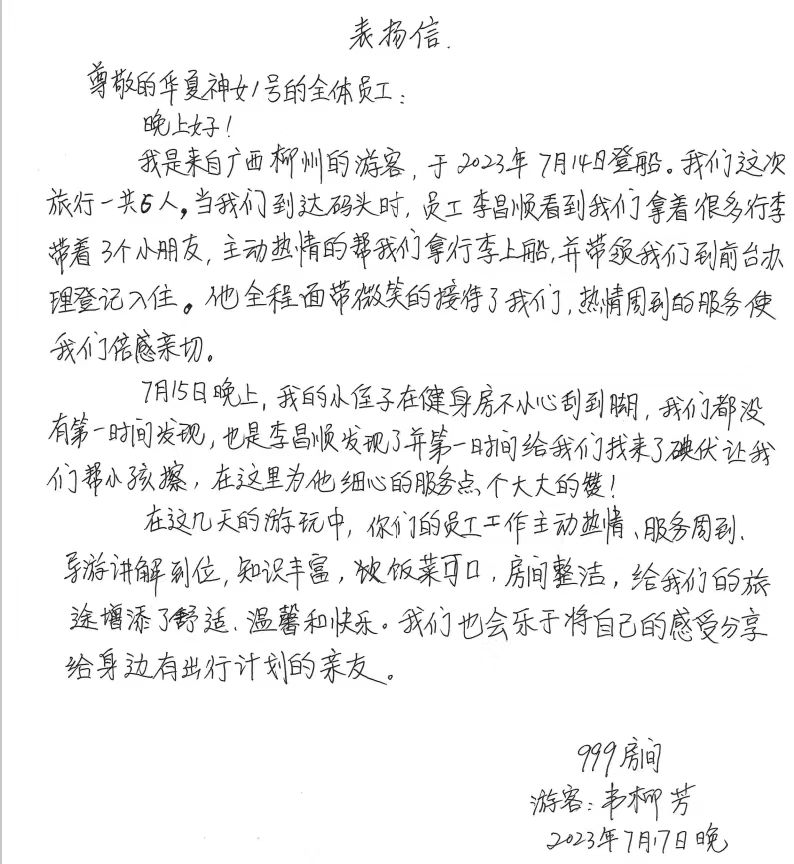 表扬信.
尊敬的华夏神女1号的全体员工:
晚上好!
我是来自广西柳州的游客,于2023年7月14日登船。我们这次
旅行一共6人,当我们到达码头时,员工李昌顺看到我们拿着很多行李
带着3个小朋友,主动热情的帮我们拿行李上船,并带领我们到前台办
理登记入住。他全程面带微笑的接待了我们,热情周到的服务使
我们倍感亲切。
7月15日晚上,我的小侄子在健身房不小心刮到脚,我们都没
有第一时间发现,也是李昌顺发现了并第一时间给我们找来了碘伏让我
们帮小孩擦,在这里为他细心的服务点个大大的赞!
在这几天的游玩中,你们的员工工作主动热情、服务周到、
导游讲解到位,知识丰富,饮饭菜可口,房间整洁,给我们的旅
途增添了舒适、温馨和快乐。我们也会乐于将自己的感受分享
给身边有出行计划的亲友。
999房间
游客:韦柳芳
2023年7月17日晚